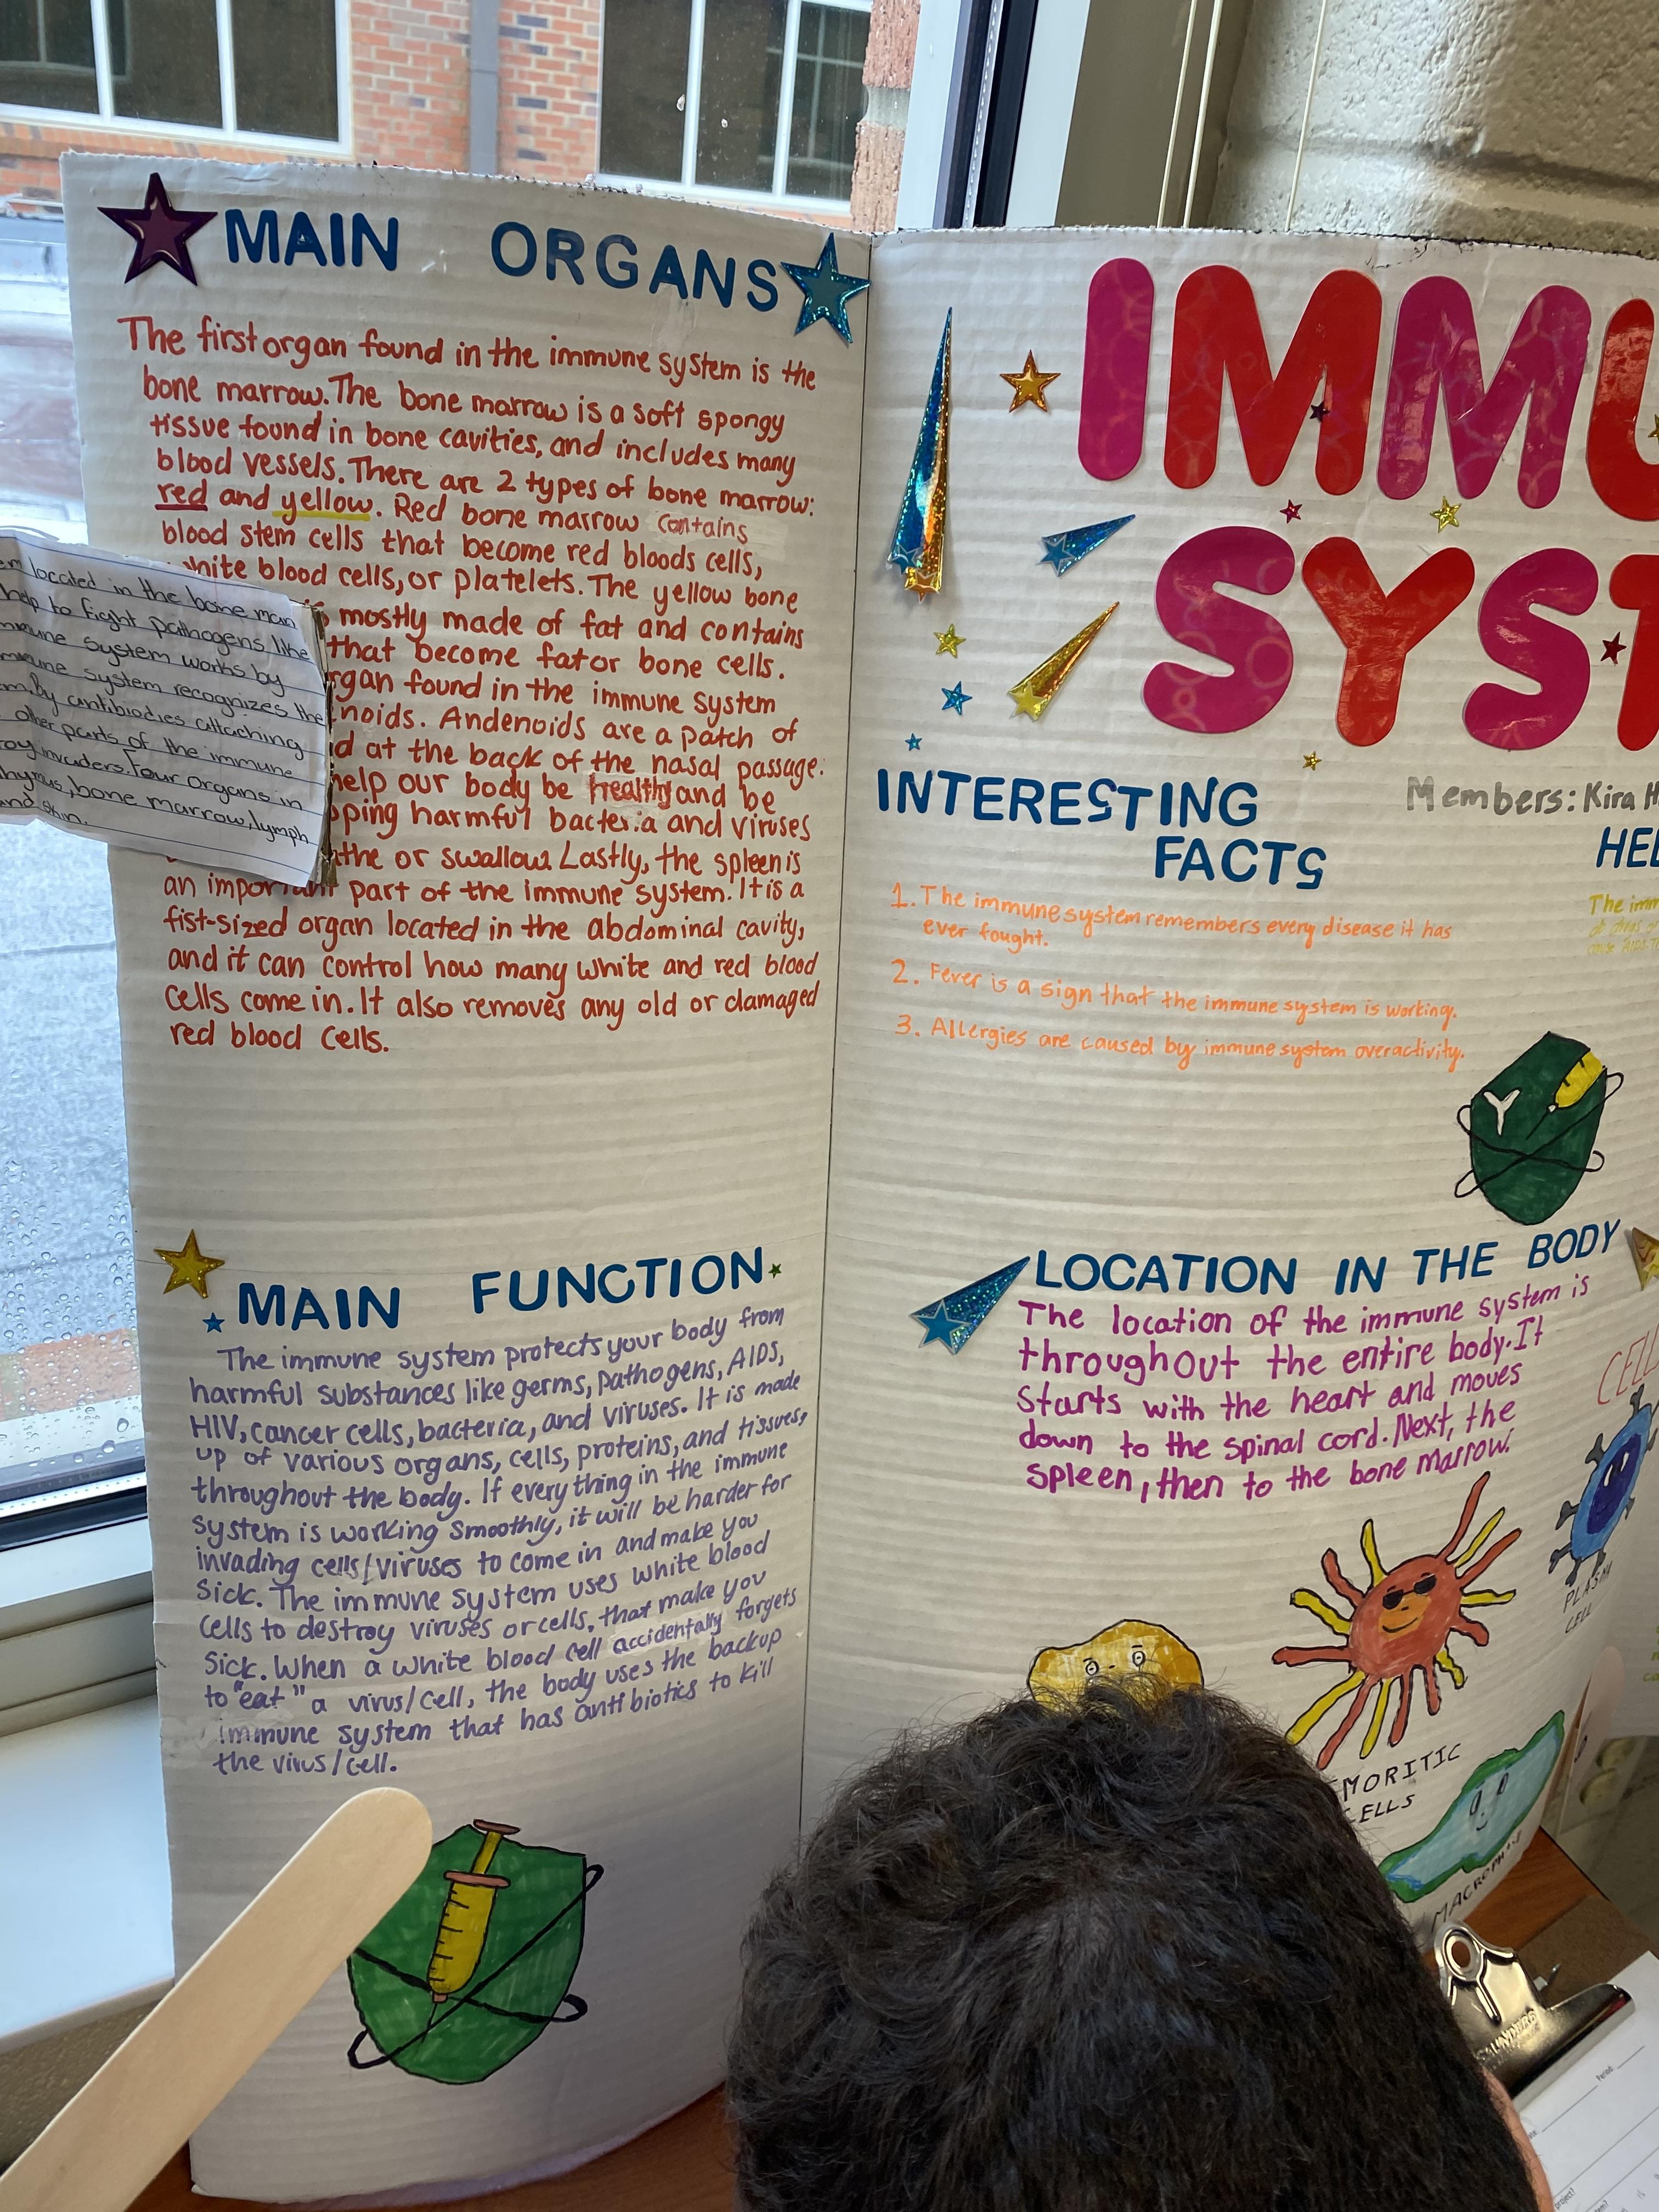 MAIN ORGANS
The first organ found in the immune system is the
bone marrow. The bone marrow is a soft spongy
tissue found in bone cavities, and includes many
blood vessels. There are 2 types of bone marrow:
red and yellow. Red bone marrow contains
blood stem cells that become red bloods cells,
white blood cells, or platelets. The yellow bone
mostly made of fat and contains
that become fat or bone cells.
found in the immune system
noids. Andenoids are a patch of
at the back of the nasal passage.
help our body be healthy and be
harmful bacteria and viruses
or swallow. Lastly, the spleen is
an important part of the immune system. It is a
fist-sized organ located in the abdominal cavity,
and it can control how many white and red blood
cells come in. It also removes any old or damaged
red blood cells.
located in the bone marr
help to fight pathogens like
system works by
system recognizes the
by antibiodies attaching
other parts of the immune
invaders. Four organs in
bone marrow, lymph
and skin.
MAIN FUNCTION
The immune system protects your body from
harmful substances like germs, pathogens, AIDS,
HIV, cancer cells, bacteria, and viruses. It is made
up of various organs, cells, proteins, and tissues,
throughout the body. If everything in the immune
system is working smoothly, it will be harder for
invading cells/viruses to come in and make you
sick. The immune system uses white blood
cells to destroy viruses or cells, that make you
sick. When a white blood cell accidentally forgets
to "eat" a virus/cell, the body uses the backup
immune system that has antibiotics to kill
the virus/cell.
IMMU
SYST
Members: Kira H
INTERESTING
FACTS
1. The immune system remembers every disease it has
ever fought.
2. Fever is a sign that the immune system is working.
3. Allergies are caused by immune system overactivity.
HEL
The imm
LOCATION IN THE BODY
The location of the immune system is
throughout the entire body. It
starts with the heart and moves
down to the spinal cord. Next, the
spleen, then to the bone marrow.
CELL
PLASM
CELL
MORITIC
CELLS
Period: